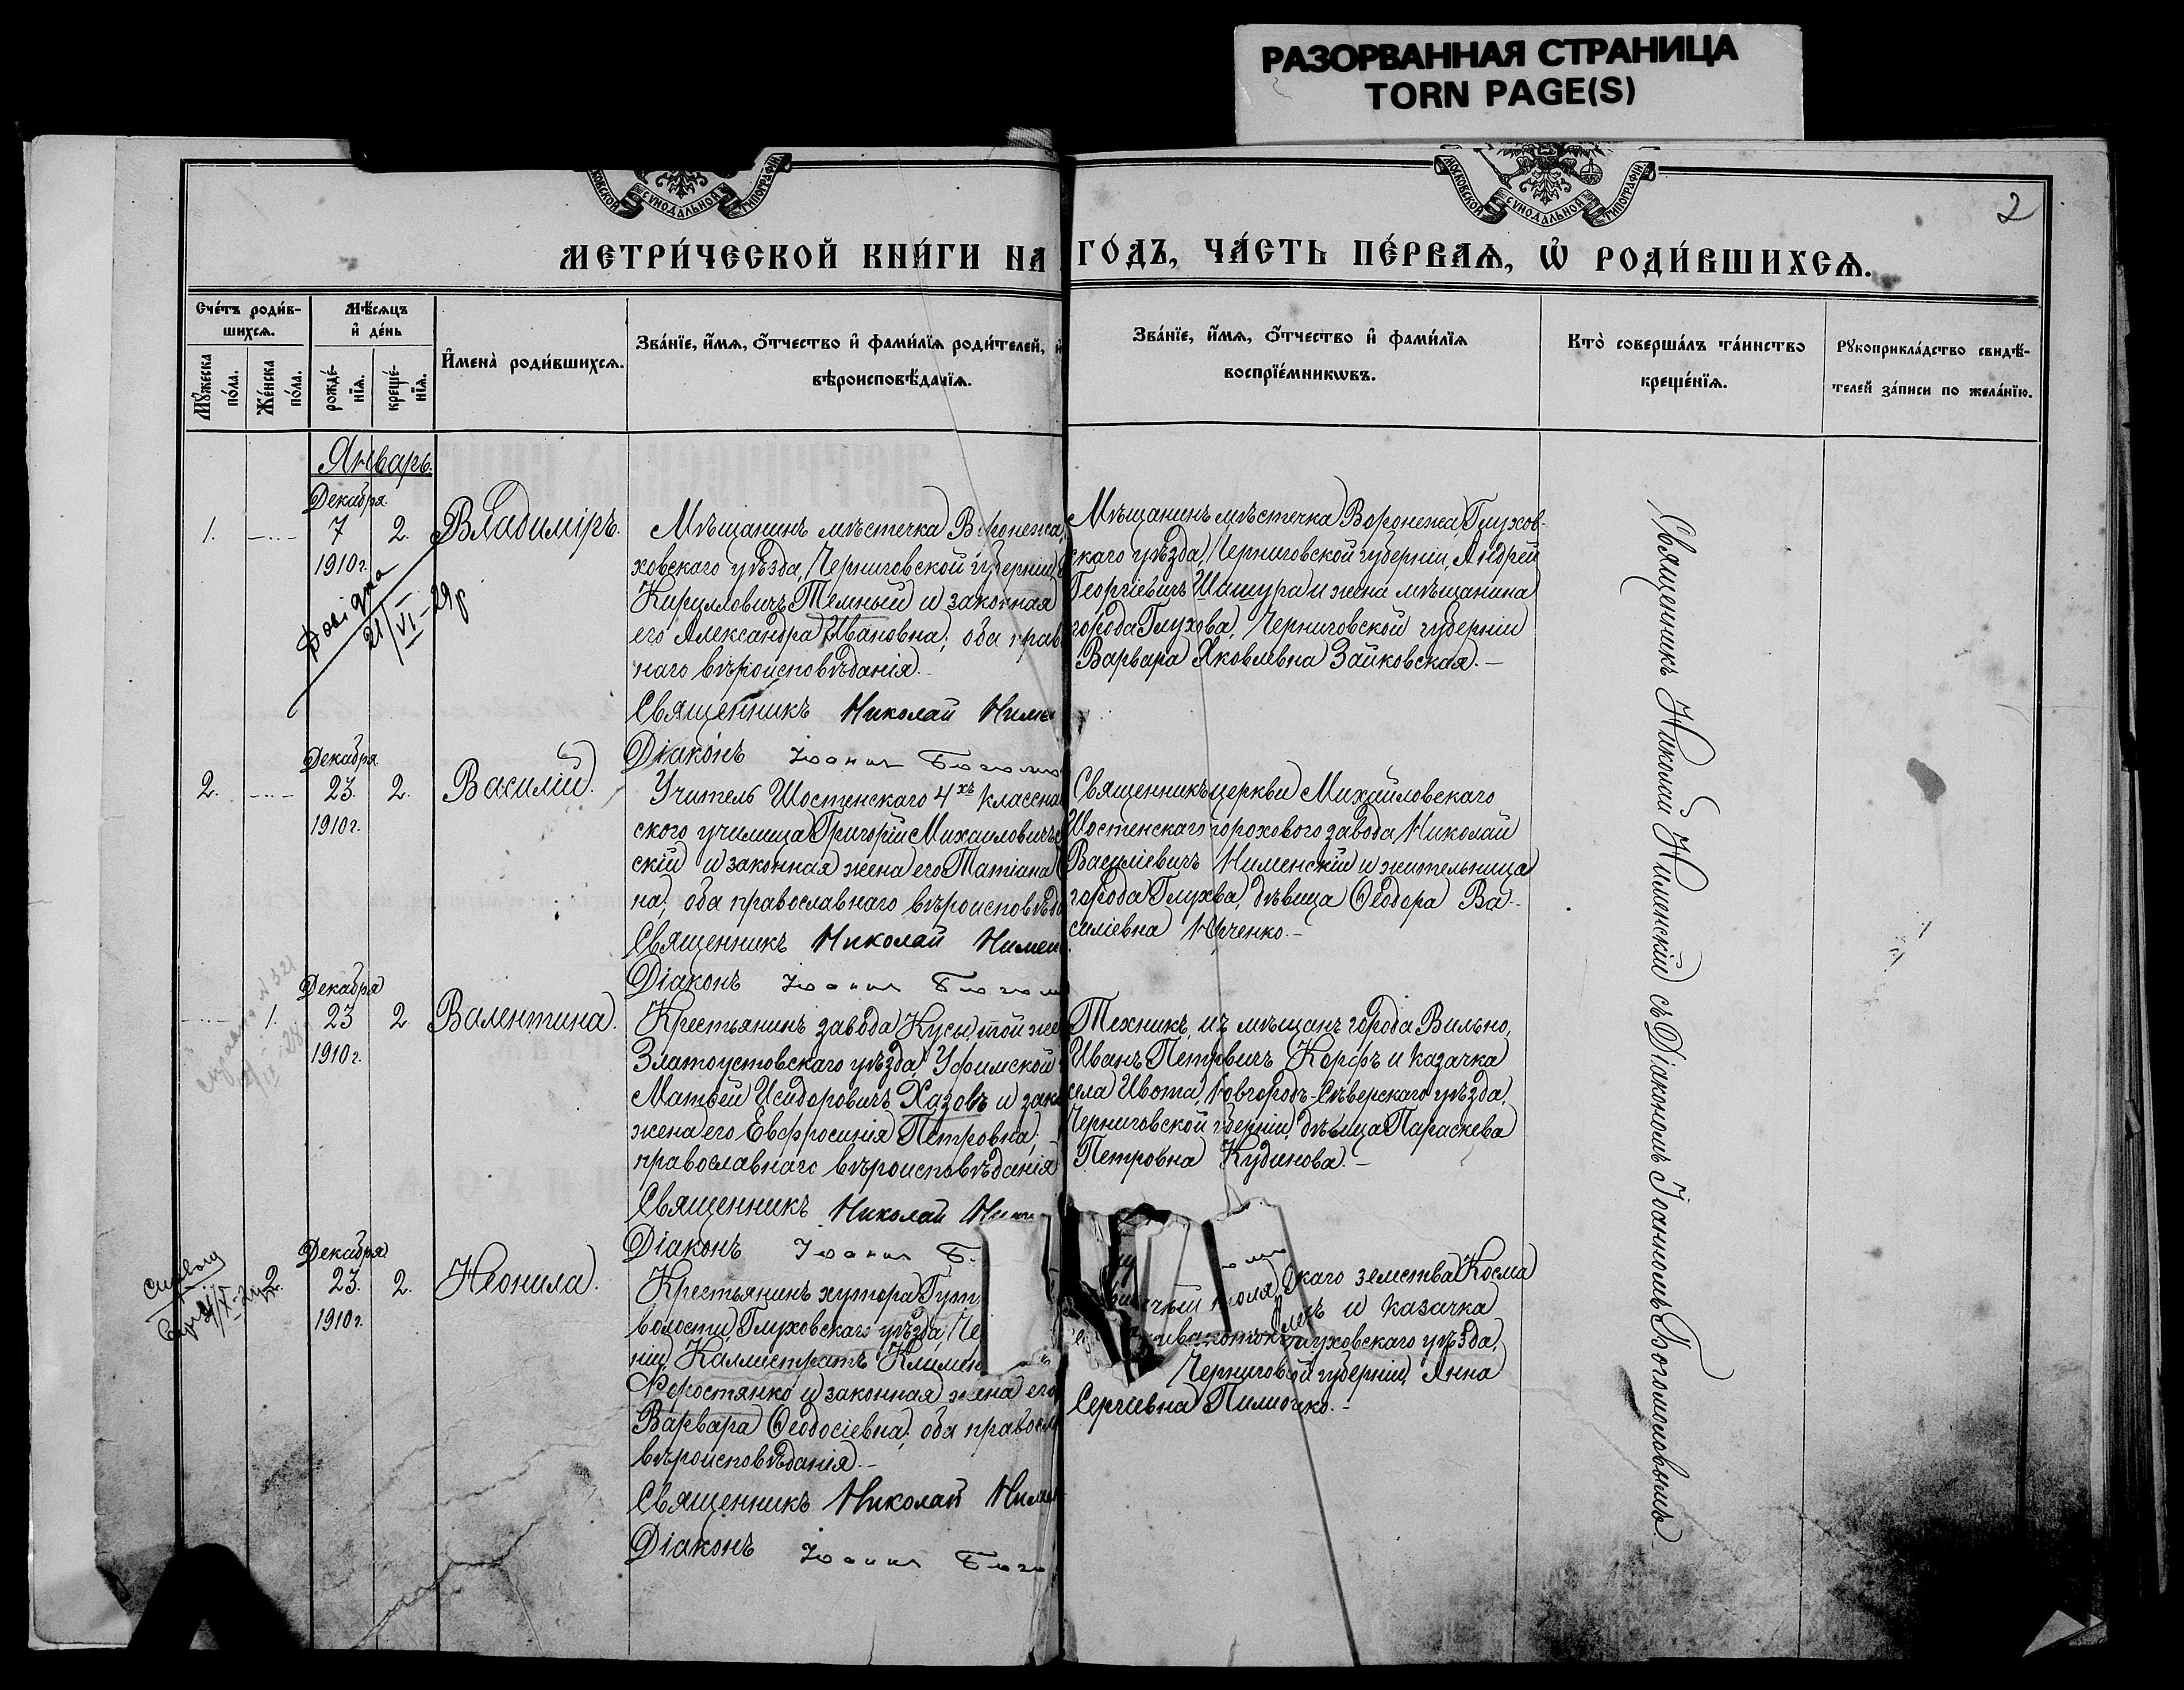 РАЗОРВАННАЯ СТРАНИЦА
TORN PAGE(S)
МОСКОВСКОЙ СѴНОДАЛЬНОЙ ТИПОГРАФІИ
2
МЕТРИ́ЧЕСКОЙ КНИ́ГИ НА ГО́ДЪ, ЧА́СТЬ ПЕ́РВАѦ, Ѡ҆ РОДИ́ВШИХСѦ.
Сче́тъ роди́в-
шихсѧ.
Мꙋ́жеска по́ла.
Же́нска по́ла.
Мѣ́сѧцъ
и҆ де́нь
рожде́-
нїѧ.
креще́-
нїѧ.
И҆мена̀ роди́вшихсѧ.
Зва́нїе, и҆́мѧ, ѻ҆́тчество и҆ фами́лїѧ роди́телей, и҆
вѣроисповѣ́данїѧ.
Зва́нїе, и҆́мѧ, ѻ҆́тчество и҆ фами́лїѧ
воспрїе́мникѡвъ.
Кто̀ соверша́лъ та́инство
креще́нїѧ.
Рꙋкоприкла́дство свидѣ́-
телей за́писи по жела́нїю.
Январь.
Декабря
1. 7 2. Владиміръ.
1910 г.
Довідка
21/VI-29р
Мѣщанинъ мѣстечка Воронежа,
ховскаго уѣзда, Черниговской губерніи,
Кирилловичъ Темный и законная
его Александра Ивановна; оба прав
наго вѣроисповѣданія.
Священникъ Николай Ниме
Діаконъ Іоаннъ Богомо
Мѣщанинъ мѣстечка Воронежа, Глухов-
скаго уѣзда, Черниговской губерніи, Андрей
Георгіевичъ Шашура и жена мѣщанина
города Глухова, Черниговской губерніи
Варвара Яковлевна Зайковская.
Декабря
2. 23. 2. Василій.
1910 г.
Учитель Шостенскаго 4хъ класснa
ского училища Григорій Михаиловичъ
скій и законная жена его Татіана
на; оба православнаго вѣроисповѣда
Священникъ Николай Нимен
Діаконъ Іоаннъ Богом
Священникъ церкви Михайловскаго
Шостенскаго порохового завода Николай
Василіевичъ Нименскій и жительница
города Глухва, дѣвица Ѳеодора Ва-
силіевна
Декабря
1. 23 2. Валентина.
1910 г.
Крестьянинъ завода Кусы, той же
Златоустовскаго уѣзда, Уфимской
Матѳей Исидоровичъ Хазовъ и зако
жена его Евфросинія Петровна;
православнаго вѣроисповѣданія
Священникъ Николай Ним
Діаконъ Іоаннъ Б.
Техникъ, изъ мѣщанъ города Вильно,
Иванъ Петровичъ Корфъ и казачка
села Ивота, Новгородъ-Сѣверскаго уѣзда,
Черниговской губерніи, дѣвица Параскева
Петровна Кудинова.
Декабря
2. 23. 2. Неонила.
1910 г.
Крестьянинъ хутора
волости, Глуховскаго уѣзда, Че
ніи, Каллистратъ Климен
и законная жена его
Варвара Ѳеодосіевна; оба правосл
вѣроисповѣданія.
Священникъ Николай Ниме
Діаконъ Іоаннъ Бого
скаго земства Косма
и казачка
Глуховскаго уѣзда,
Черниговской губерніи, Анна
Сергіевна Пилюгко.
Священникъ Николай Нименскій съ Діакономъ Іоанномъ Богомоловымъ